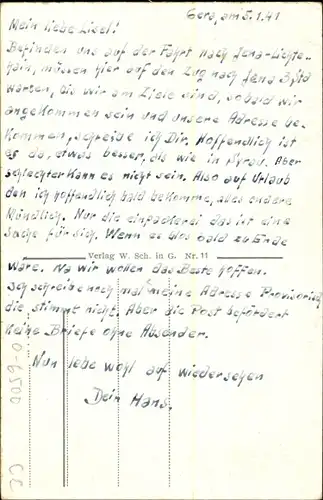 Gera, am 5.1.41
Mein liebe Lisel!
Befinden uns auf der Fahrt nach Jena-Lichte-
hain, müssen hier auf den Zug nach Jena 3 Std
warten, bis wir am Ziele sind, sobald wir
angekommen sein und unsere Adresse be-
kommen, schreibe ich Dir. Hoffendlich ist
es da, etwas besser, als wie in . Aber
schlechter kann es nicht sein. Also auf Urlaub
den ich hoffendlich bald bekomme, alles andere
Mündlich. Nur die einpackerei das ist eine
Sache für sich. Wenn es blos bald zu Ende
Verlag W. Sch. in G. Nr. 11
wäre. Na wir wollen das Beste hoffen.
Ich schreibe noch mal meine Adresse Provisorisch
die stimmt nicht. Aber die Post befördert
keine Briefe ohne Absender.
Nun lebe wohl auf wiedersehen
Dein Hans.